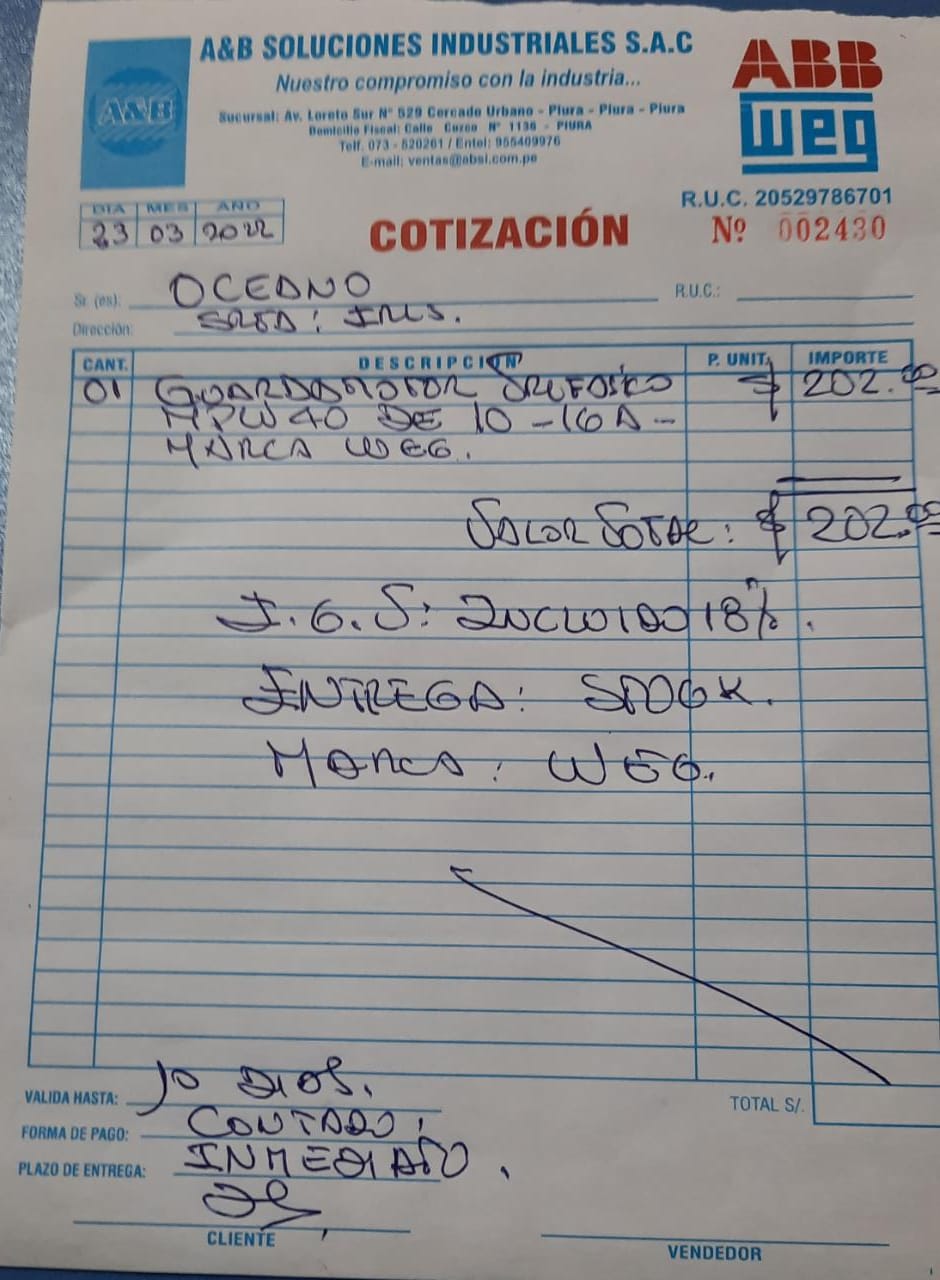 A&B SOLUCIONES INDUSTRIALES S.A.C
Nuestro compromiso con la industria...
Sucursal: Av. Loreto Sur Nº 529 Cercado Urbano - Piura - Piura - Piura
Domicilio Fiscal: Calle Cuzco Nº 1136 - PIURA
Telf. 073 - 520261 / Entel: 955409976
E-mail: ventas@absi.com.pe
A&B
ABB
WEG
R.U.C. 20529786701
DIA MES AÑO
23 03 2022
COTIZACIÓN
Nº 002430
Sr. (es): OCEANO R.U.C.:
Dirección: SRTA: INES.
CANT. DESCRIPCIÓN P. UNIT. IMPORTE
01 GUARDAMOTOR TRIFASICO $ 202.00
MPW40 DE 10-16A-
MARCA WEG.
VALOR TOTAL: $ 202.00
I.G.V: INCLUIDO 18%.
ENTREGA: STOCK.
MARCA: WEG.
VALIDA HASTA: 10 DIAS.
FORMA DE PAGO: CONTADO.
PLAZO DE ENTREGA: INMEDIATO.
TOTAL S/.
CLIENTE
VENDEDOR